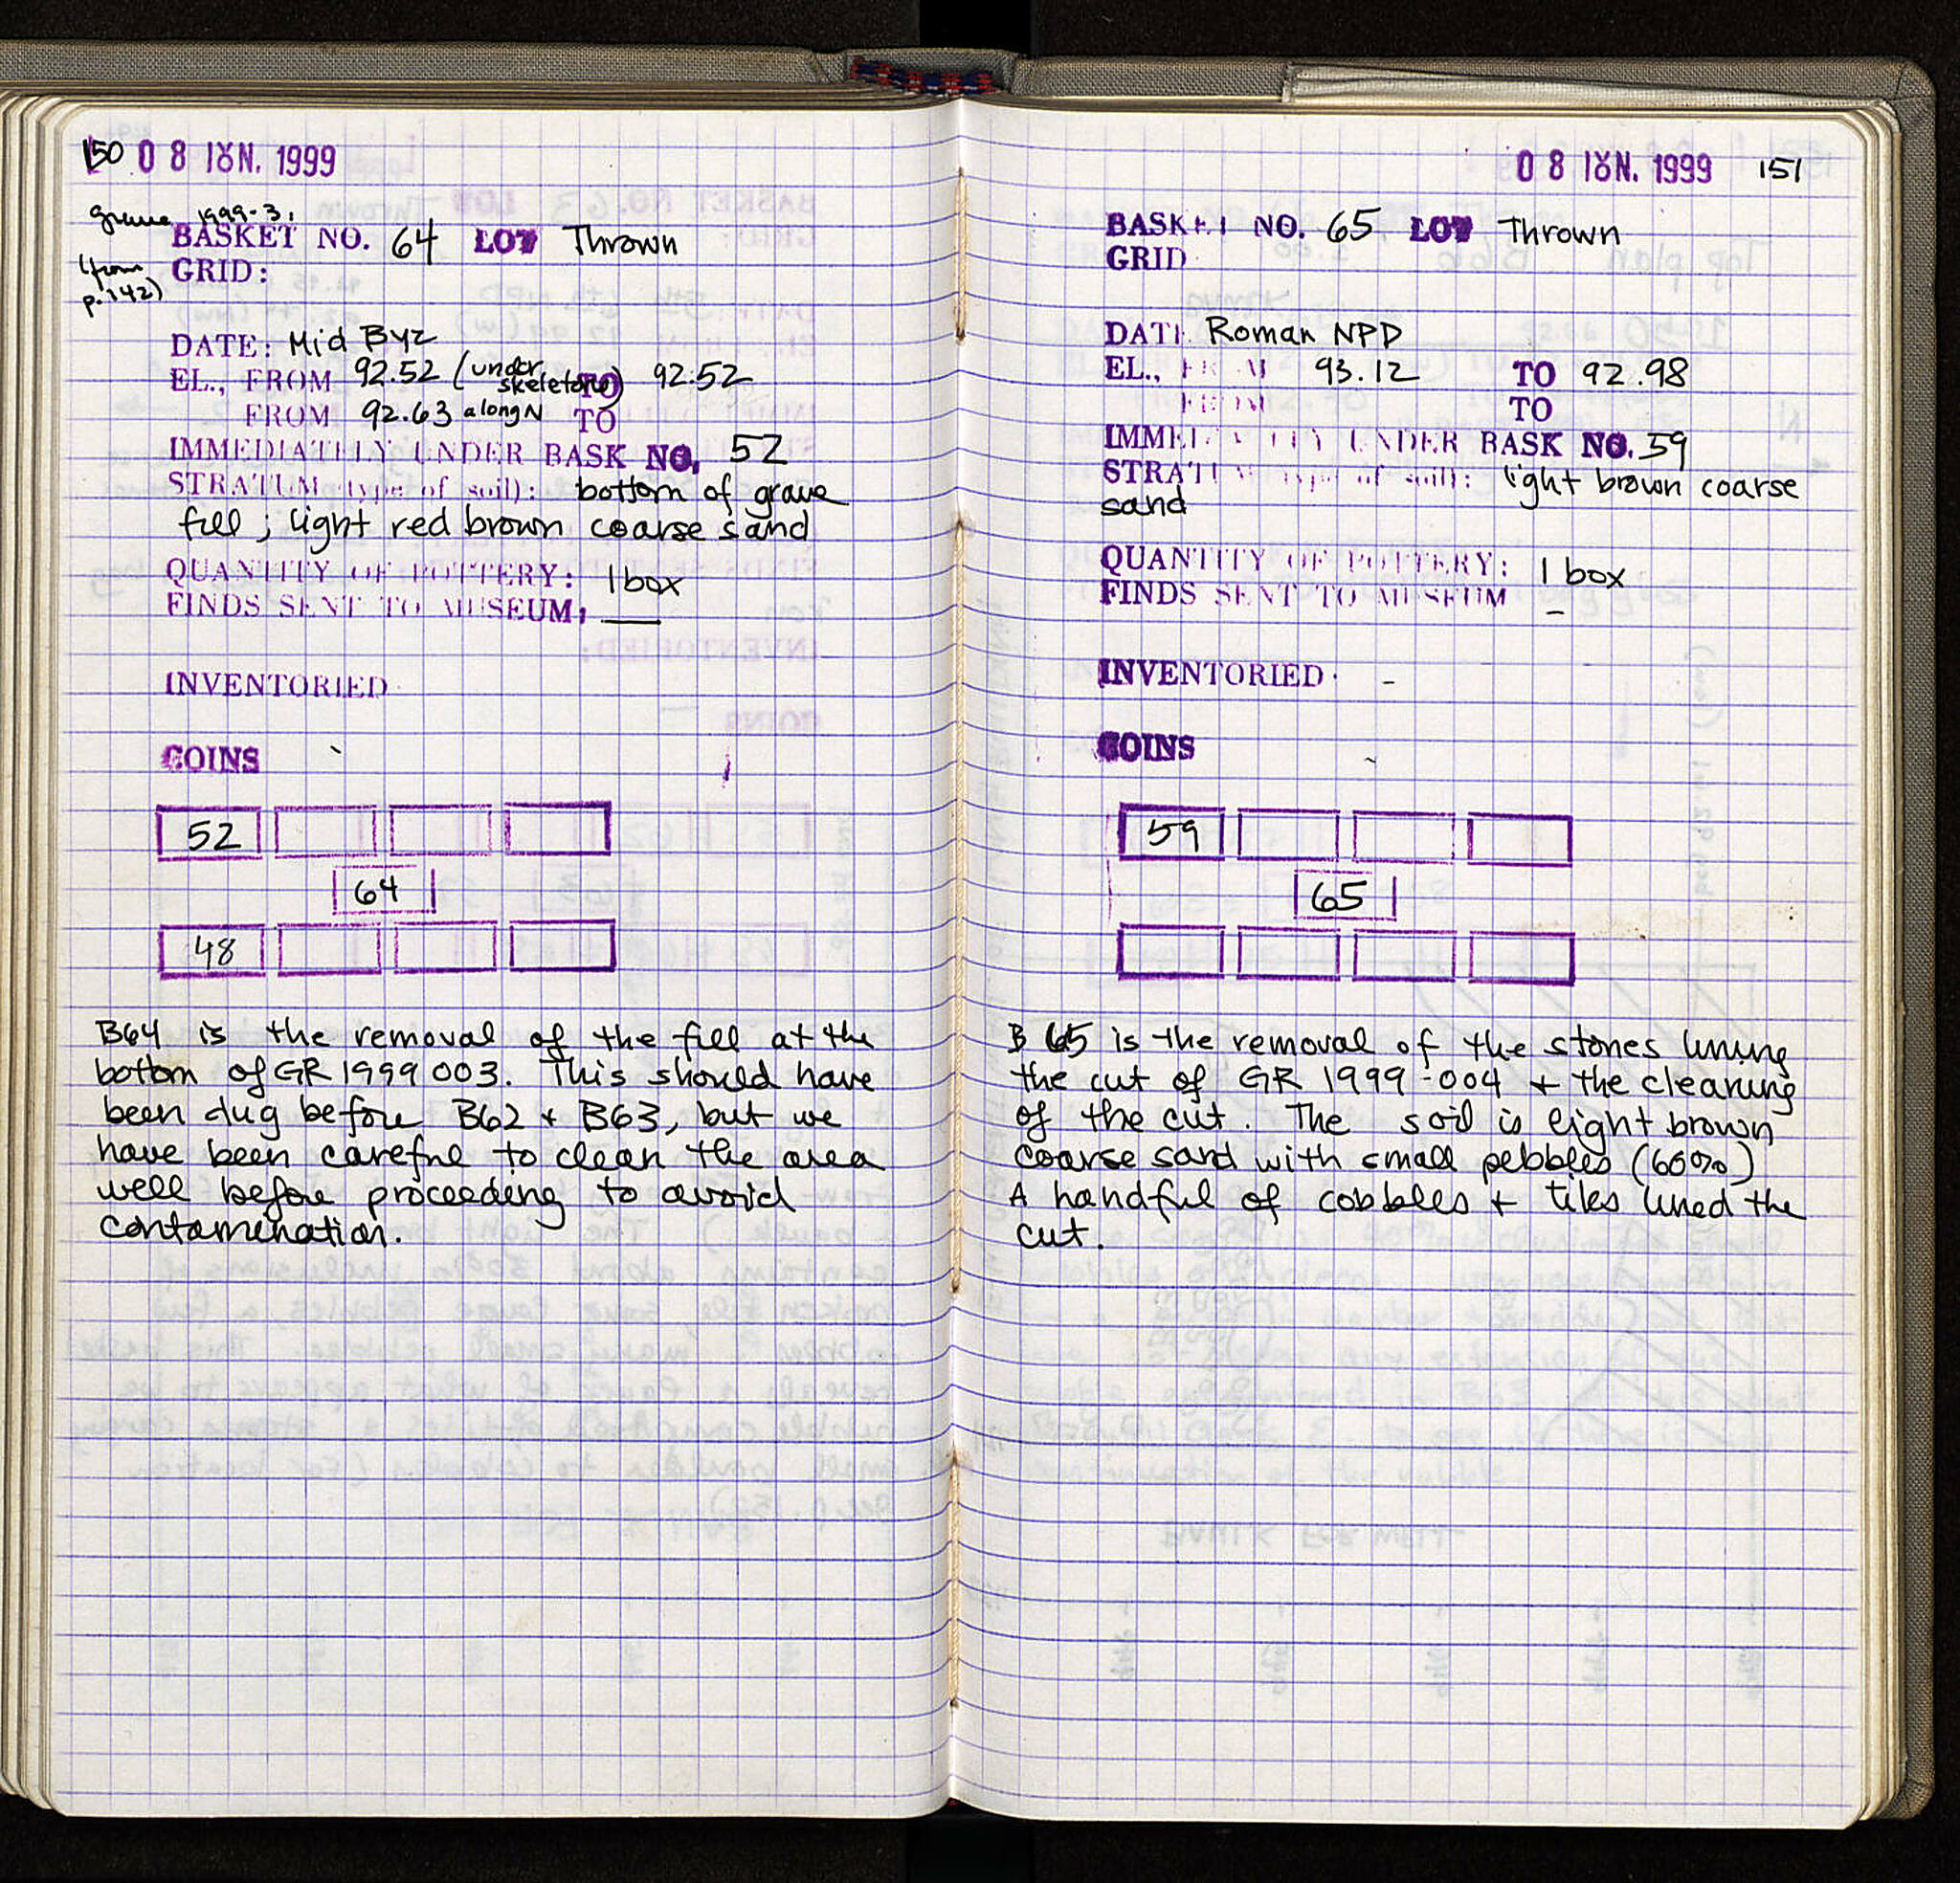 150 08 ΙΟΥΝ. 1999
grave 1999-3,
BASKET NO. 64 LOT Thrown
(from p.142) GRID:
DATE: Mid Byz
EL., FROM 92.52 (under skeleton) TO 92.52
FROM 92.63 along N TO
IMMEDIATELY UNDER BASK NO. 52
STRATUM (type of soil): bottom of grave
fill; light red brown coarse sand
QUANTITY OF POTTERY: 1 box
FINDS SENT TO MUSEUM: —
INVENTORIED
COINS
52
64
48
B64 is the removal of the fill at the
bottom of GR 1999 003. This should have
been dug before B62 + B63, but we
have been careful to clean the area
well before proceeding to avoid
contamination.
08 ΙΟΥΝ. 1999 151
BASKET NO. 65 LOT Thrown
GRID
DATE Roman NPD
EL., FROM 93.12 TO 92.98
FROM TO
IMMEDIATELY UNDER BASK NO. 59
STRATUM (type of soil): light brown coarse
sand
QUANTITY OF POTTERY: 1 box
FINDS SENT TO MUSEUM –
INVENTORIED -
COINS -
59
65
B 65 is the removal of the stones lining
the cut of GR 1999-004 + the cleaning
of the cut. The soil is light brown
coarse sand with small pebbles (60%)
A handful of cobbles + tiles lined the
cut.